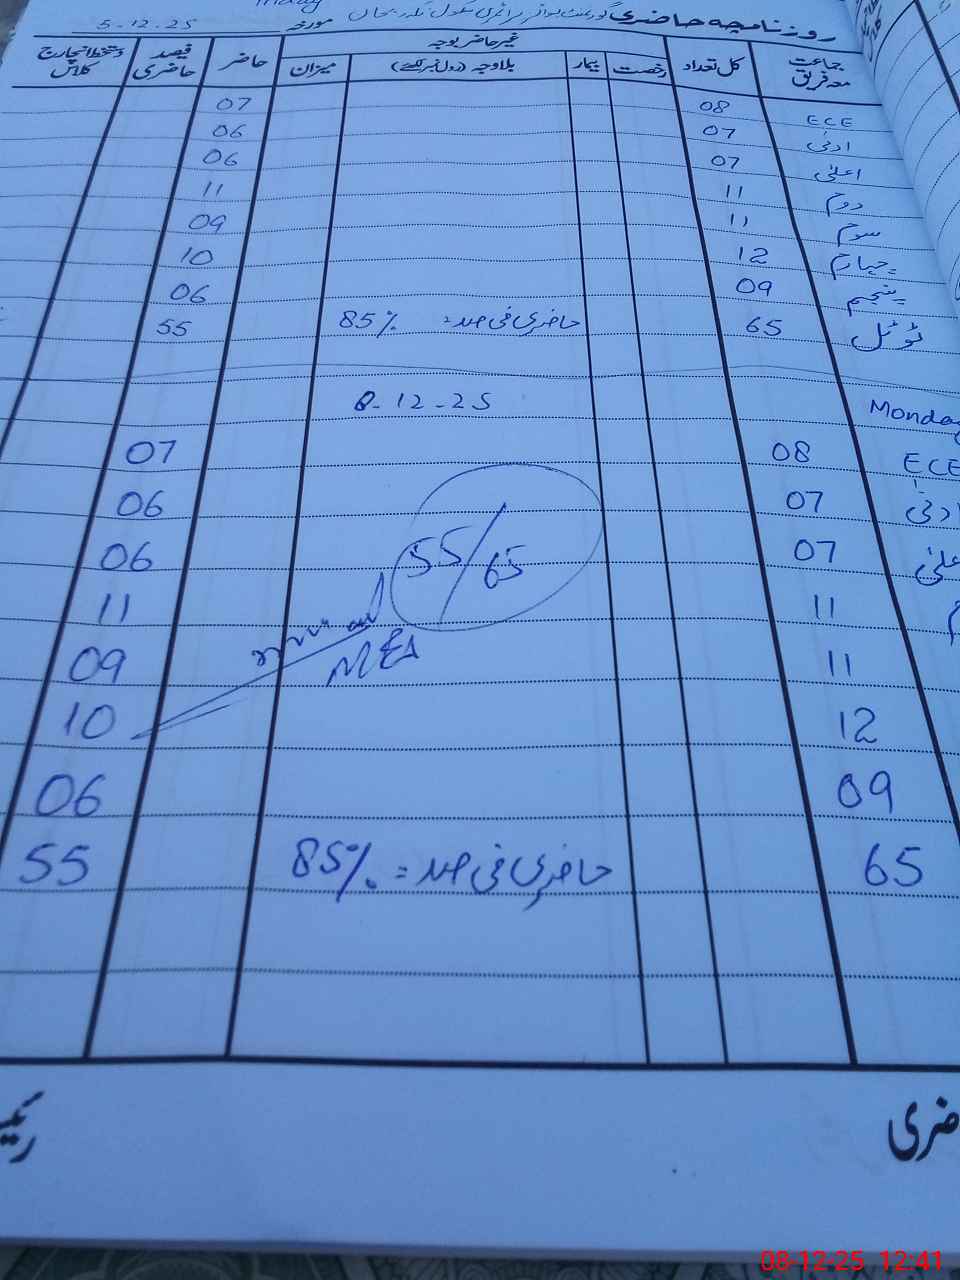 Friday
روزنامچہ حاضری گورنمنٹ بوائز پرائمری سکول مورخہ 5.12.25
جماعت معہ فریق کل تعداد غیر حاضر بوجہ حاضر فیصد حاضری دستخط انچارج کلاس
رخصت بیمار بلاوجہ (رول نمبر لکھیے) میزان
ECE 08 07
ادنیٰ 07 06
اعلیٰ 07 06
دوم 11 11
سوم 11 09
چہارم 12 10
پنجم 09 06
ٹوٹل 65 حاضری فی صد = 85% 55
Monday 8.12.25
ECE 08 07
ادنیٰ 07 06
علیٰ 07 06
11 11
11 09
12 10
09 06
55/65
MEA
65 حاضری فی صد = 85% 55
ضری
رئیـ
08-12-25 12:41